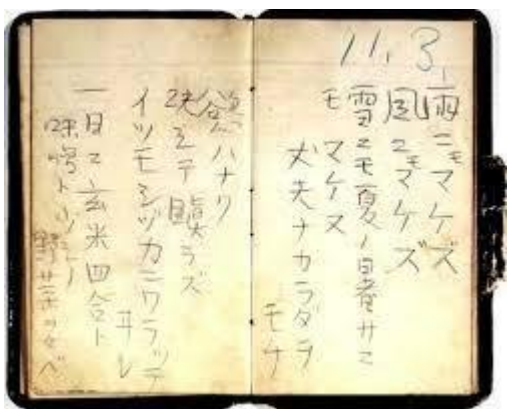 11. 3.
雨ニモマケズ
風ニモマケズ
雪ニモ夏ノ暑サニ
モ マケヌ
丈夫ナカラダヲ
モチ
慾ハナク
決シテ瞋ラズ
イツモシヅカニワラッテ
ヰル
一日ニ玄米四合ト
味噌ト少シノ
野菜ヲタベ